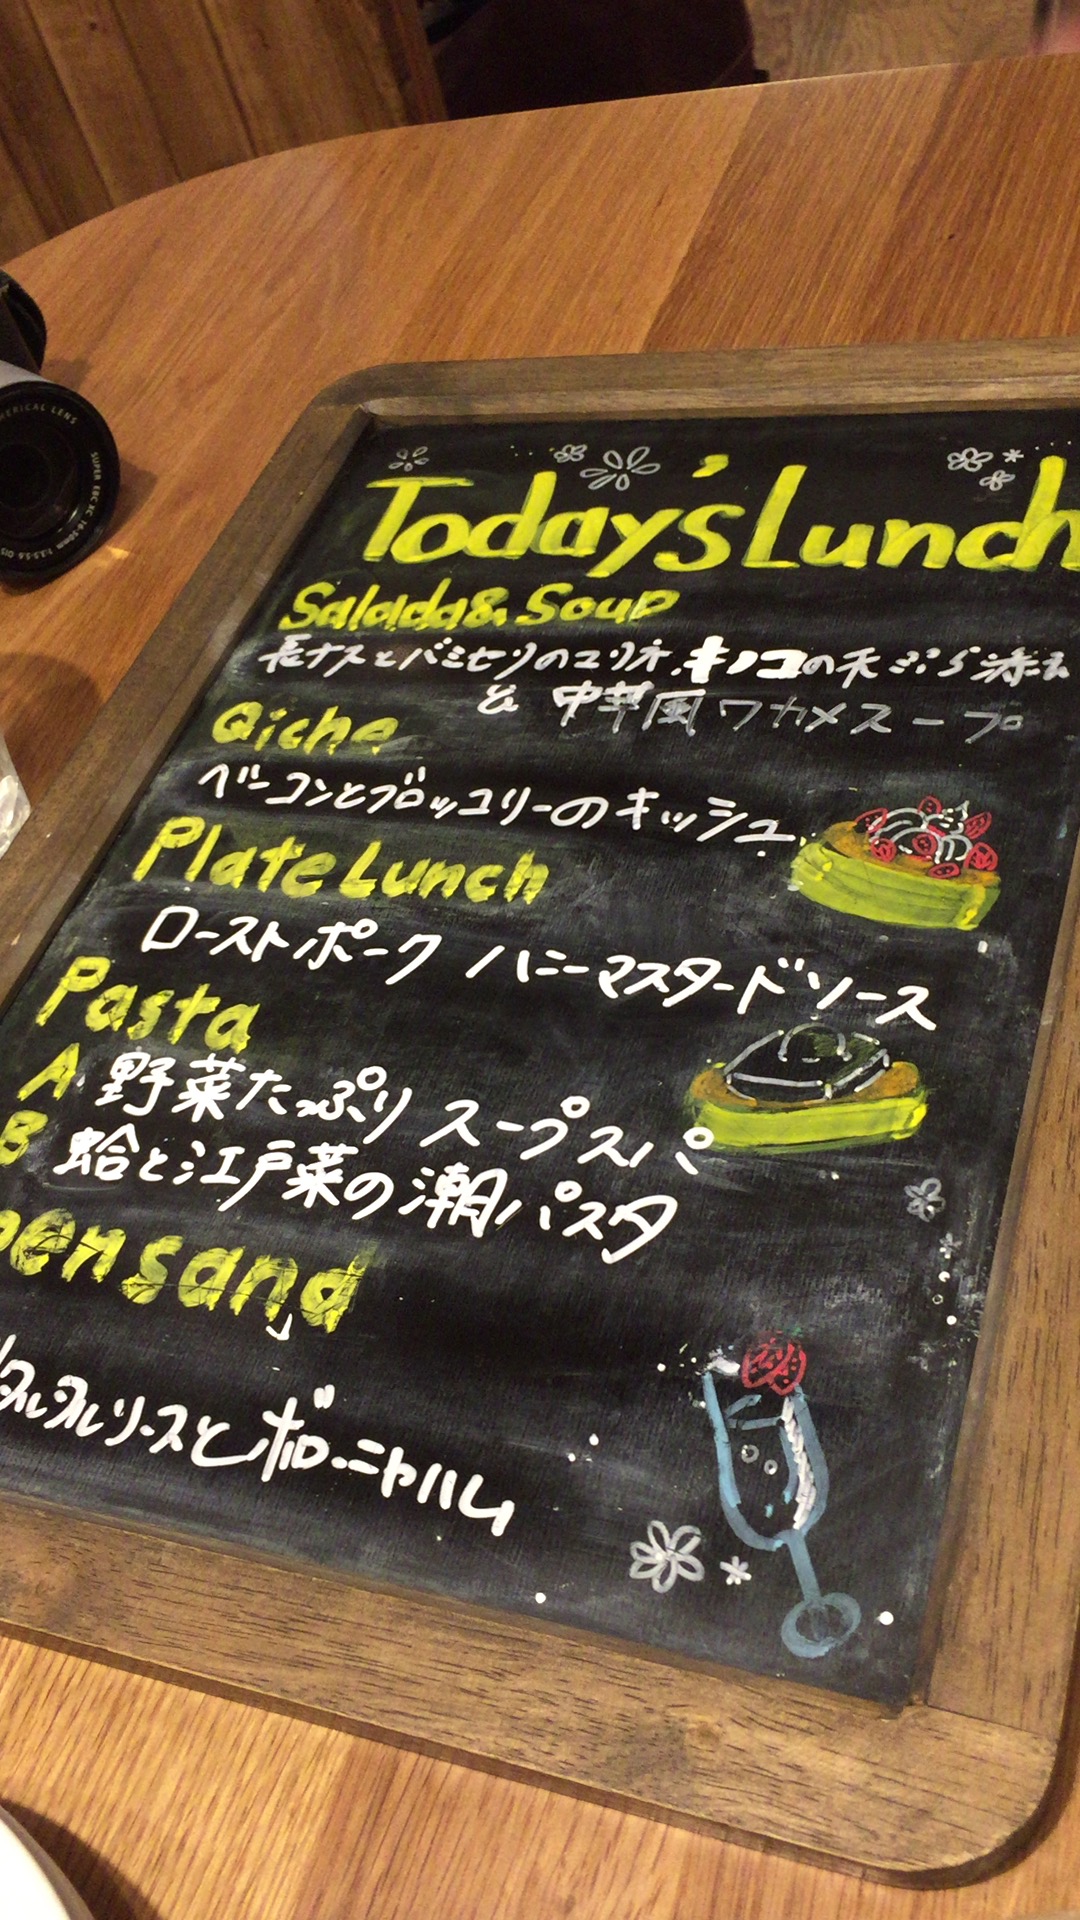 Today's Lunch
Salada & Soup
長ナスとバミセリのユリオ、キノコの天ぷら添え
と 中華風ワカメスープ
Qiche
ベーコンとブロッコリーのキッシュ
Plate Lunch
ローストポーク ハニーマスタードソース
Pasta
A. 野菜たっぷり スープスパ
B 蛤と江戸菜の潮パスタ
pen sand
タルタルソースとボローニャハム
SUPER EBC XC 16-50mm 1:3.5-5.6 OIS